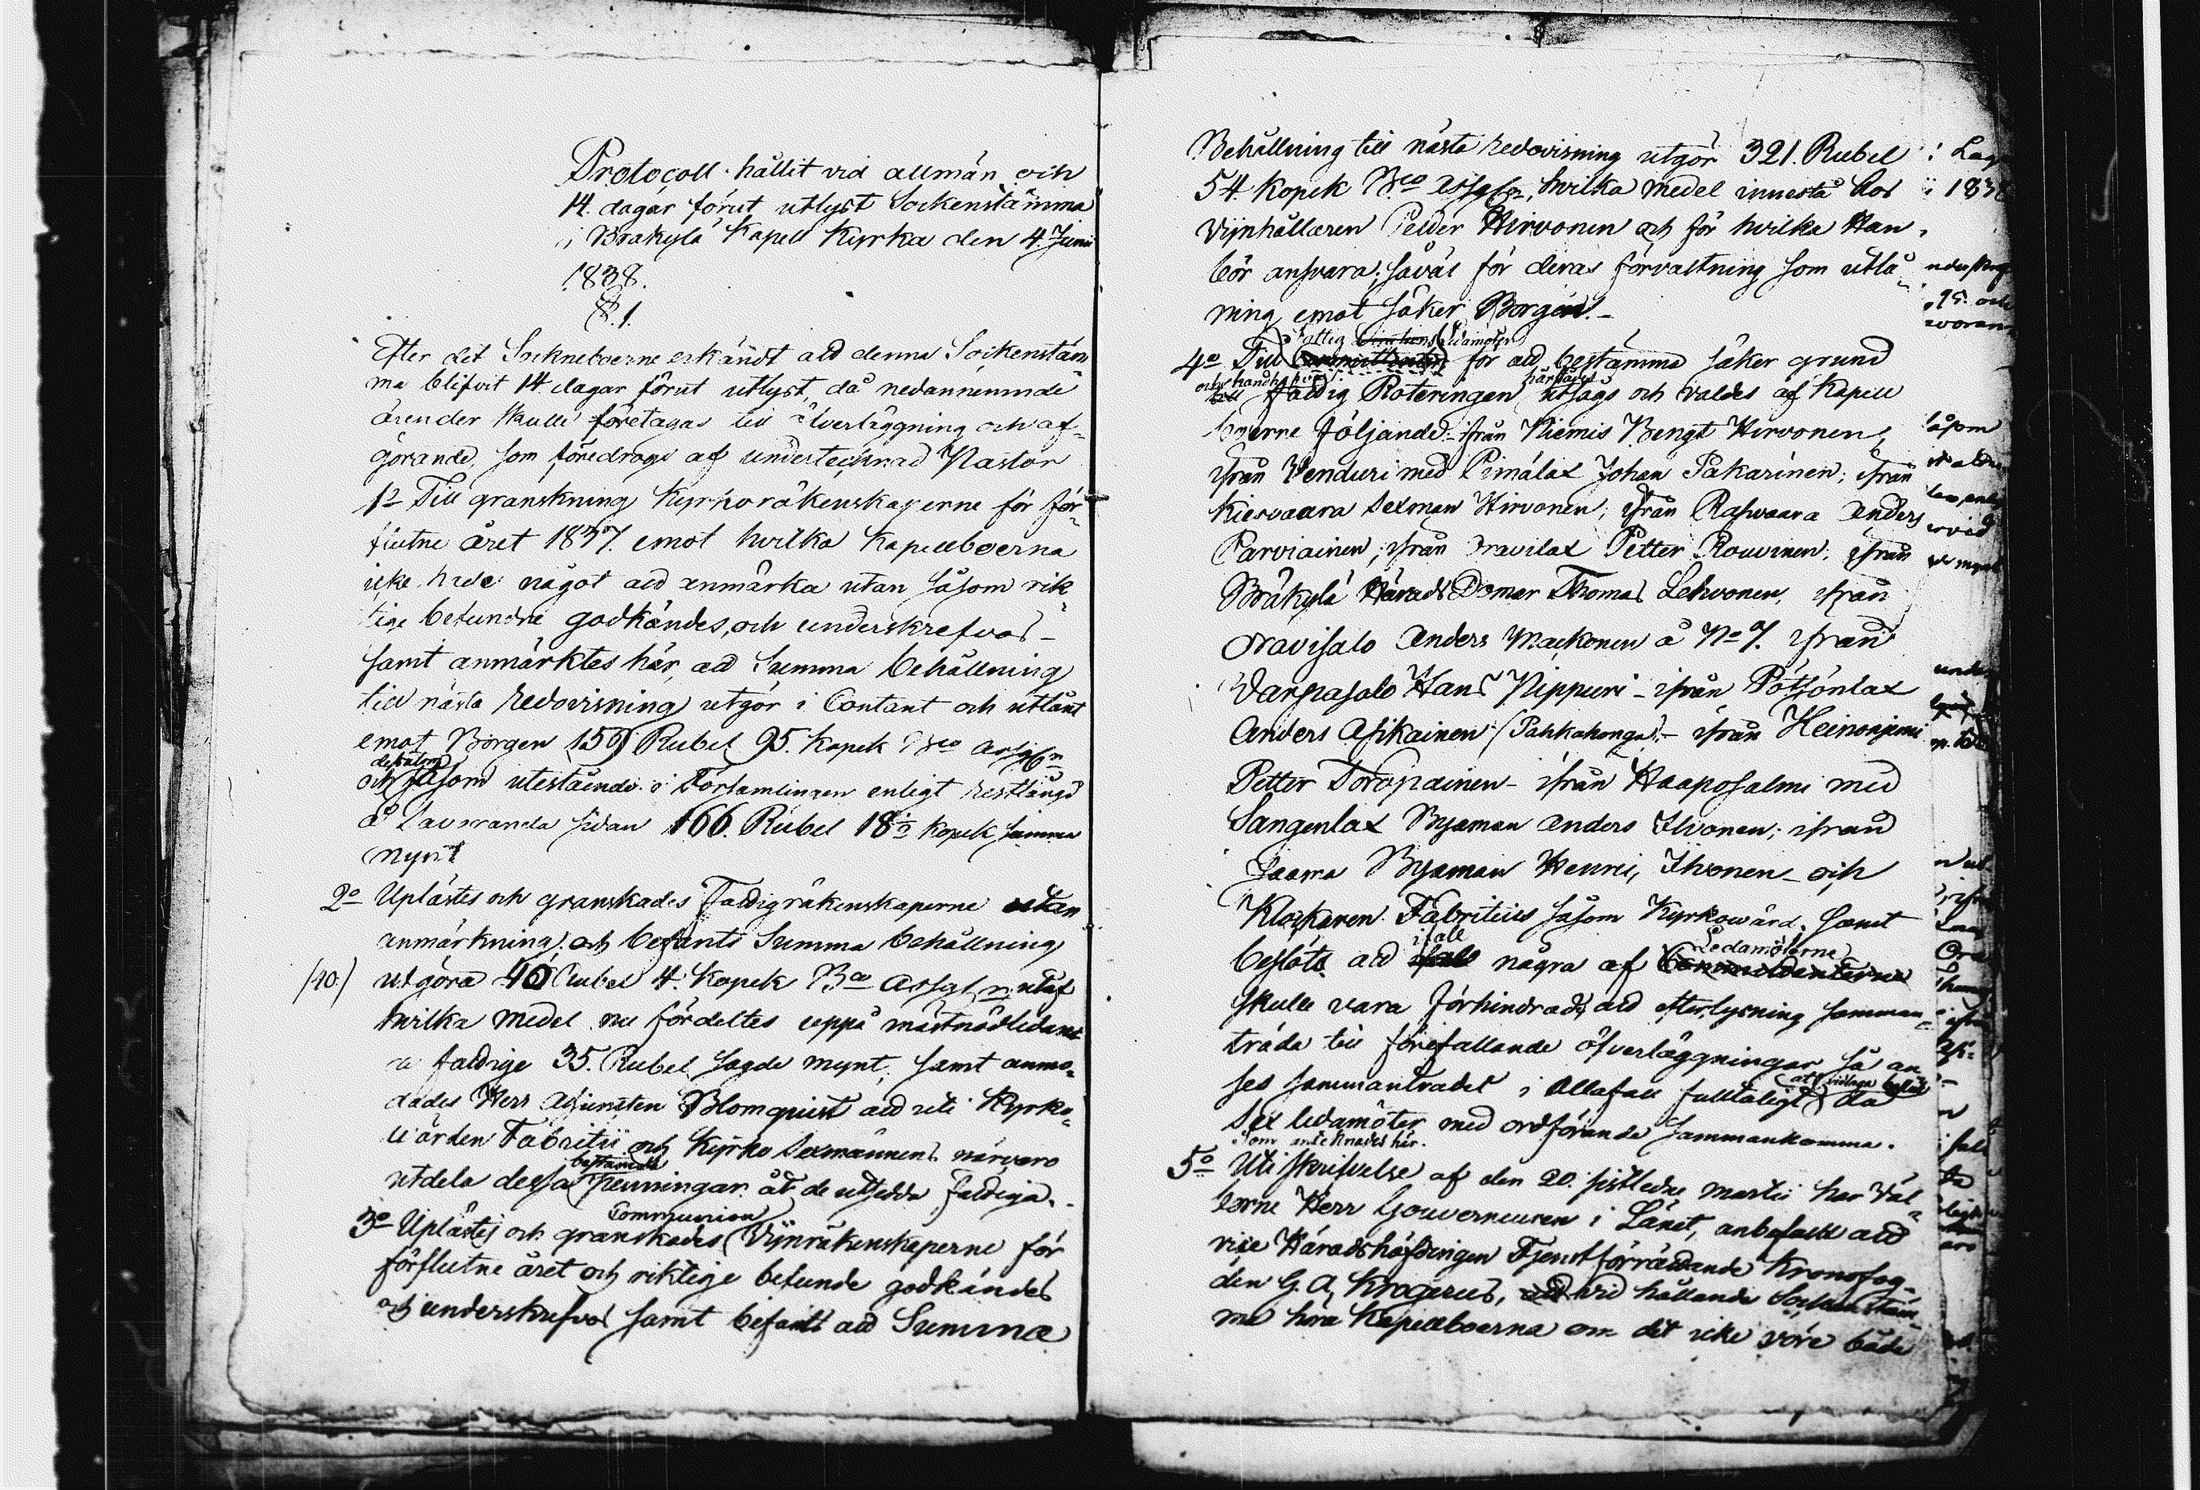 Protocoll hållit vid allmän och
14. dagar förut utlyst Sockenstämma
i Bräkylä Kapell Kyrka den 4. Junii
1838.
§.1.
Efter det Sockneboerne erkändt att denna Sockenstäm
ma blifvit 14 dagar förut utlyst, då nedannemnde
ärender skulle företagas till öfverläggning och af-
görande, som föredrogs af undertecknad Pastor
1o Till granskning Kyrkoräkenskaperne för för-
flutne året 1837. emot hvilka Kapellboerna
icke hade något att anmärka utan såsom rik
tige befundne godkändes, och underskrefvos-
samt anmärktes här, att Summa behållning
till nästa Redovisning utgör i Contant och utlånt
emot Borgen 159 Rubel 95. Kopek Bco Assgn
dessutom
och såsom utestående i Församlingen enligt restlängd
å Tavoranda sidan 166. Rubel 18½ Kopek samma
mynt
2o Uplästes och granskades Fattigräkenskaperne utan
anmärkning och befants Summa behållning
(40.) utgöra 40 Rubel 4. Kopek Bco Assgn utaf
hvilka medel nu fördeltes uppå mästnödlidand-
e fattige 35. Rubel sagde mynt, samt anmo-
dades Herr Adjuncten Blomquist att uti Kyrko-
värden Fabritii och Kyrko Sexmännens närvaro
bestämde
utdela dessa penningar åt de utsedda fattiga.
Communion
3o Uplästes och granskades Vijnräkenskaperne för
förflutne året och riktige befunde godkändes
och underskrefvos samt befants att Summa
Behållning till nästa Redovisning utgör 321. Rubel
54. Kopek Bco Assgn, hvilka medel innestå hos
Vijnhållaren Petter Hirvonen och för hvilka Han
bör ansvara, såväl för deras förvaltning som utlå-
ning emot säker Borgen.-
Fattig Ledamöter
4o Till för att bestämma säker grund
härstädes
till fattig Roteringen utsågs och valdes af Kapell
boerne följande: ifrån Niemis Bengt Hirvonen,
ifrån Venduri med Pimälax Johan Pakarinen; ifrån
Kiesvaara Sexman Hirvonen; ifrån Rasvaara Anders
Parviainen; ifrån Oravilax Petter Rouvinen, ifrån
Bräkylä Härads Domar Thomas Lehvonen, ifrån
Oravisalo Anders Mackonen å No 7. ifrån
Varpasalo Hans Pippuri - ifrån Pötsönlax
Anders Asikainen (Pahkakanga).- ifrån Heinoniemi
Petter Toropainen - ifrån Haaposalmi med
Sangenlax Byaman Anders Ihvonen; ifrån
Jaama Byaman Henric Ihvonen - och
Klockaren Fabritius såsom Kyrkowärd; samt
ifall Ledamöterne
beslöts att några af Committenterne
skulle vara förhindrade att efter lysning samman-
träda till förefallande öfverläggningar så an
ses sammanträdet i Allafall fulltaligt då
sex ledamöter med ordförande sammankomma.
som antecknades här.
5o Uti skrifvelse af den 20. sistledne Martii har Väl-
borne Herr Gouverneuren i Länet, anbefallt att
vice Häradshöfdingen Tjenstförrättande Kronofog-
den G. A. Krogerus, vid hållande Sockenstäm-
ma höra Kapellboerna om det icke vore både